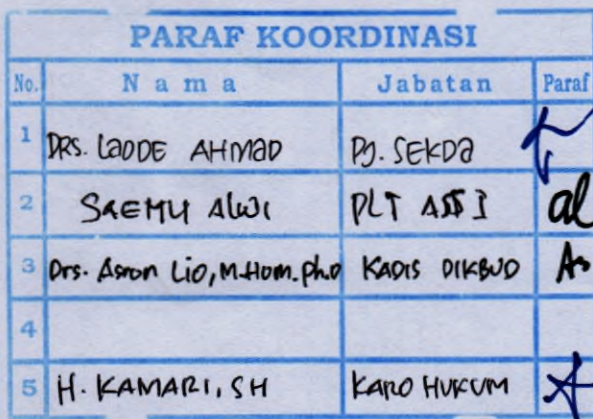 PARAF KOORDINASI
No. Nama Jabatan Paraf
1 DRS. LaODE AHMaD Pj. SEKDa
2 SAEMU Alwi PLT ASS I
3 Drs. Asron Lio, M.Hom. ph.D KADIS DIKBUD
4
5 H. KAMARI, SH KARO HUKUM